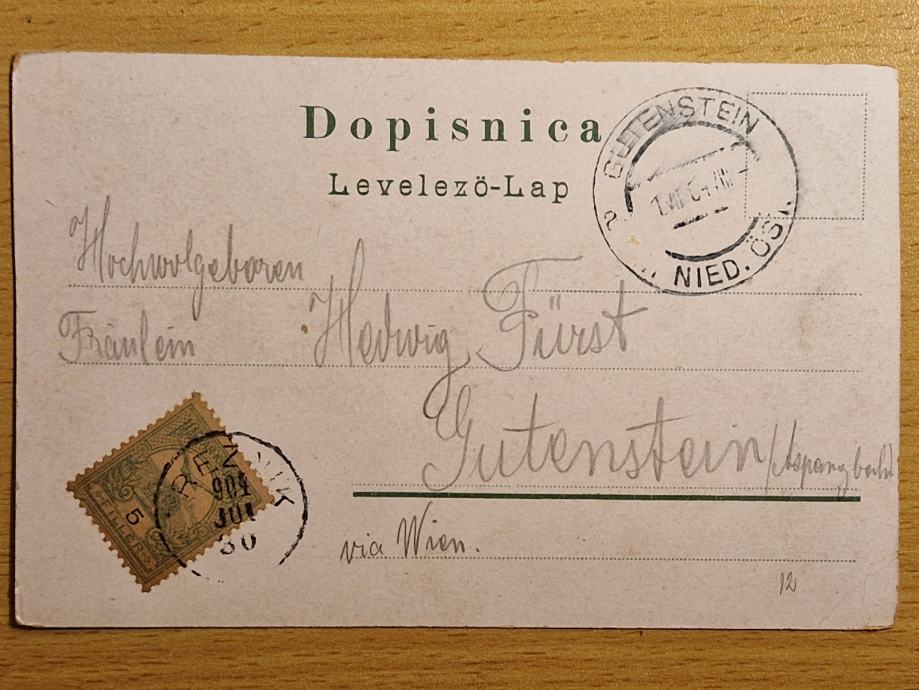 Dopisnica
Levelezö-Lap
GUTENSTEIN
NIED. ÖST.
a
Hochwolgeboren
Fräulein Hedwig Fürst
Gutenstein /Aspangbahn
via Wien.
FILLER 5
904
JUL
30
12